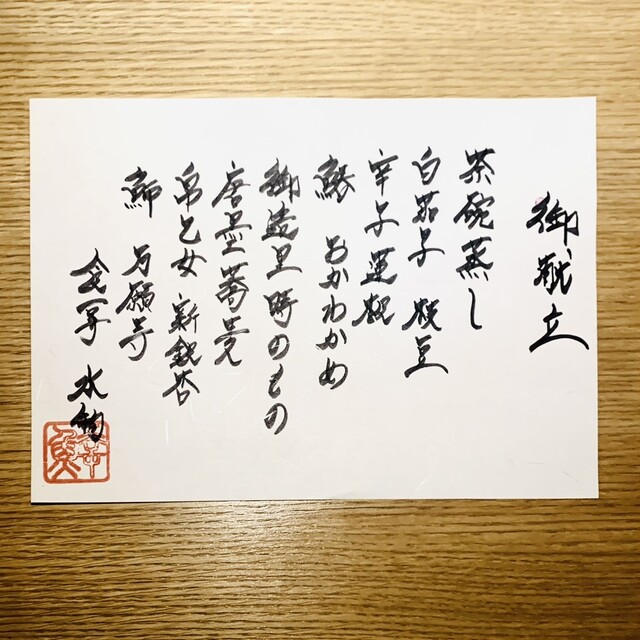 御献立
茶碗蒸し
白茄子 枝豆
辛子蓮根
鱶 おかわかめ
御造里 時のもの
唐墨蕎麦
帛乙女 新銀杏
鰤 万願寺
食事 水物